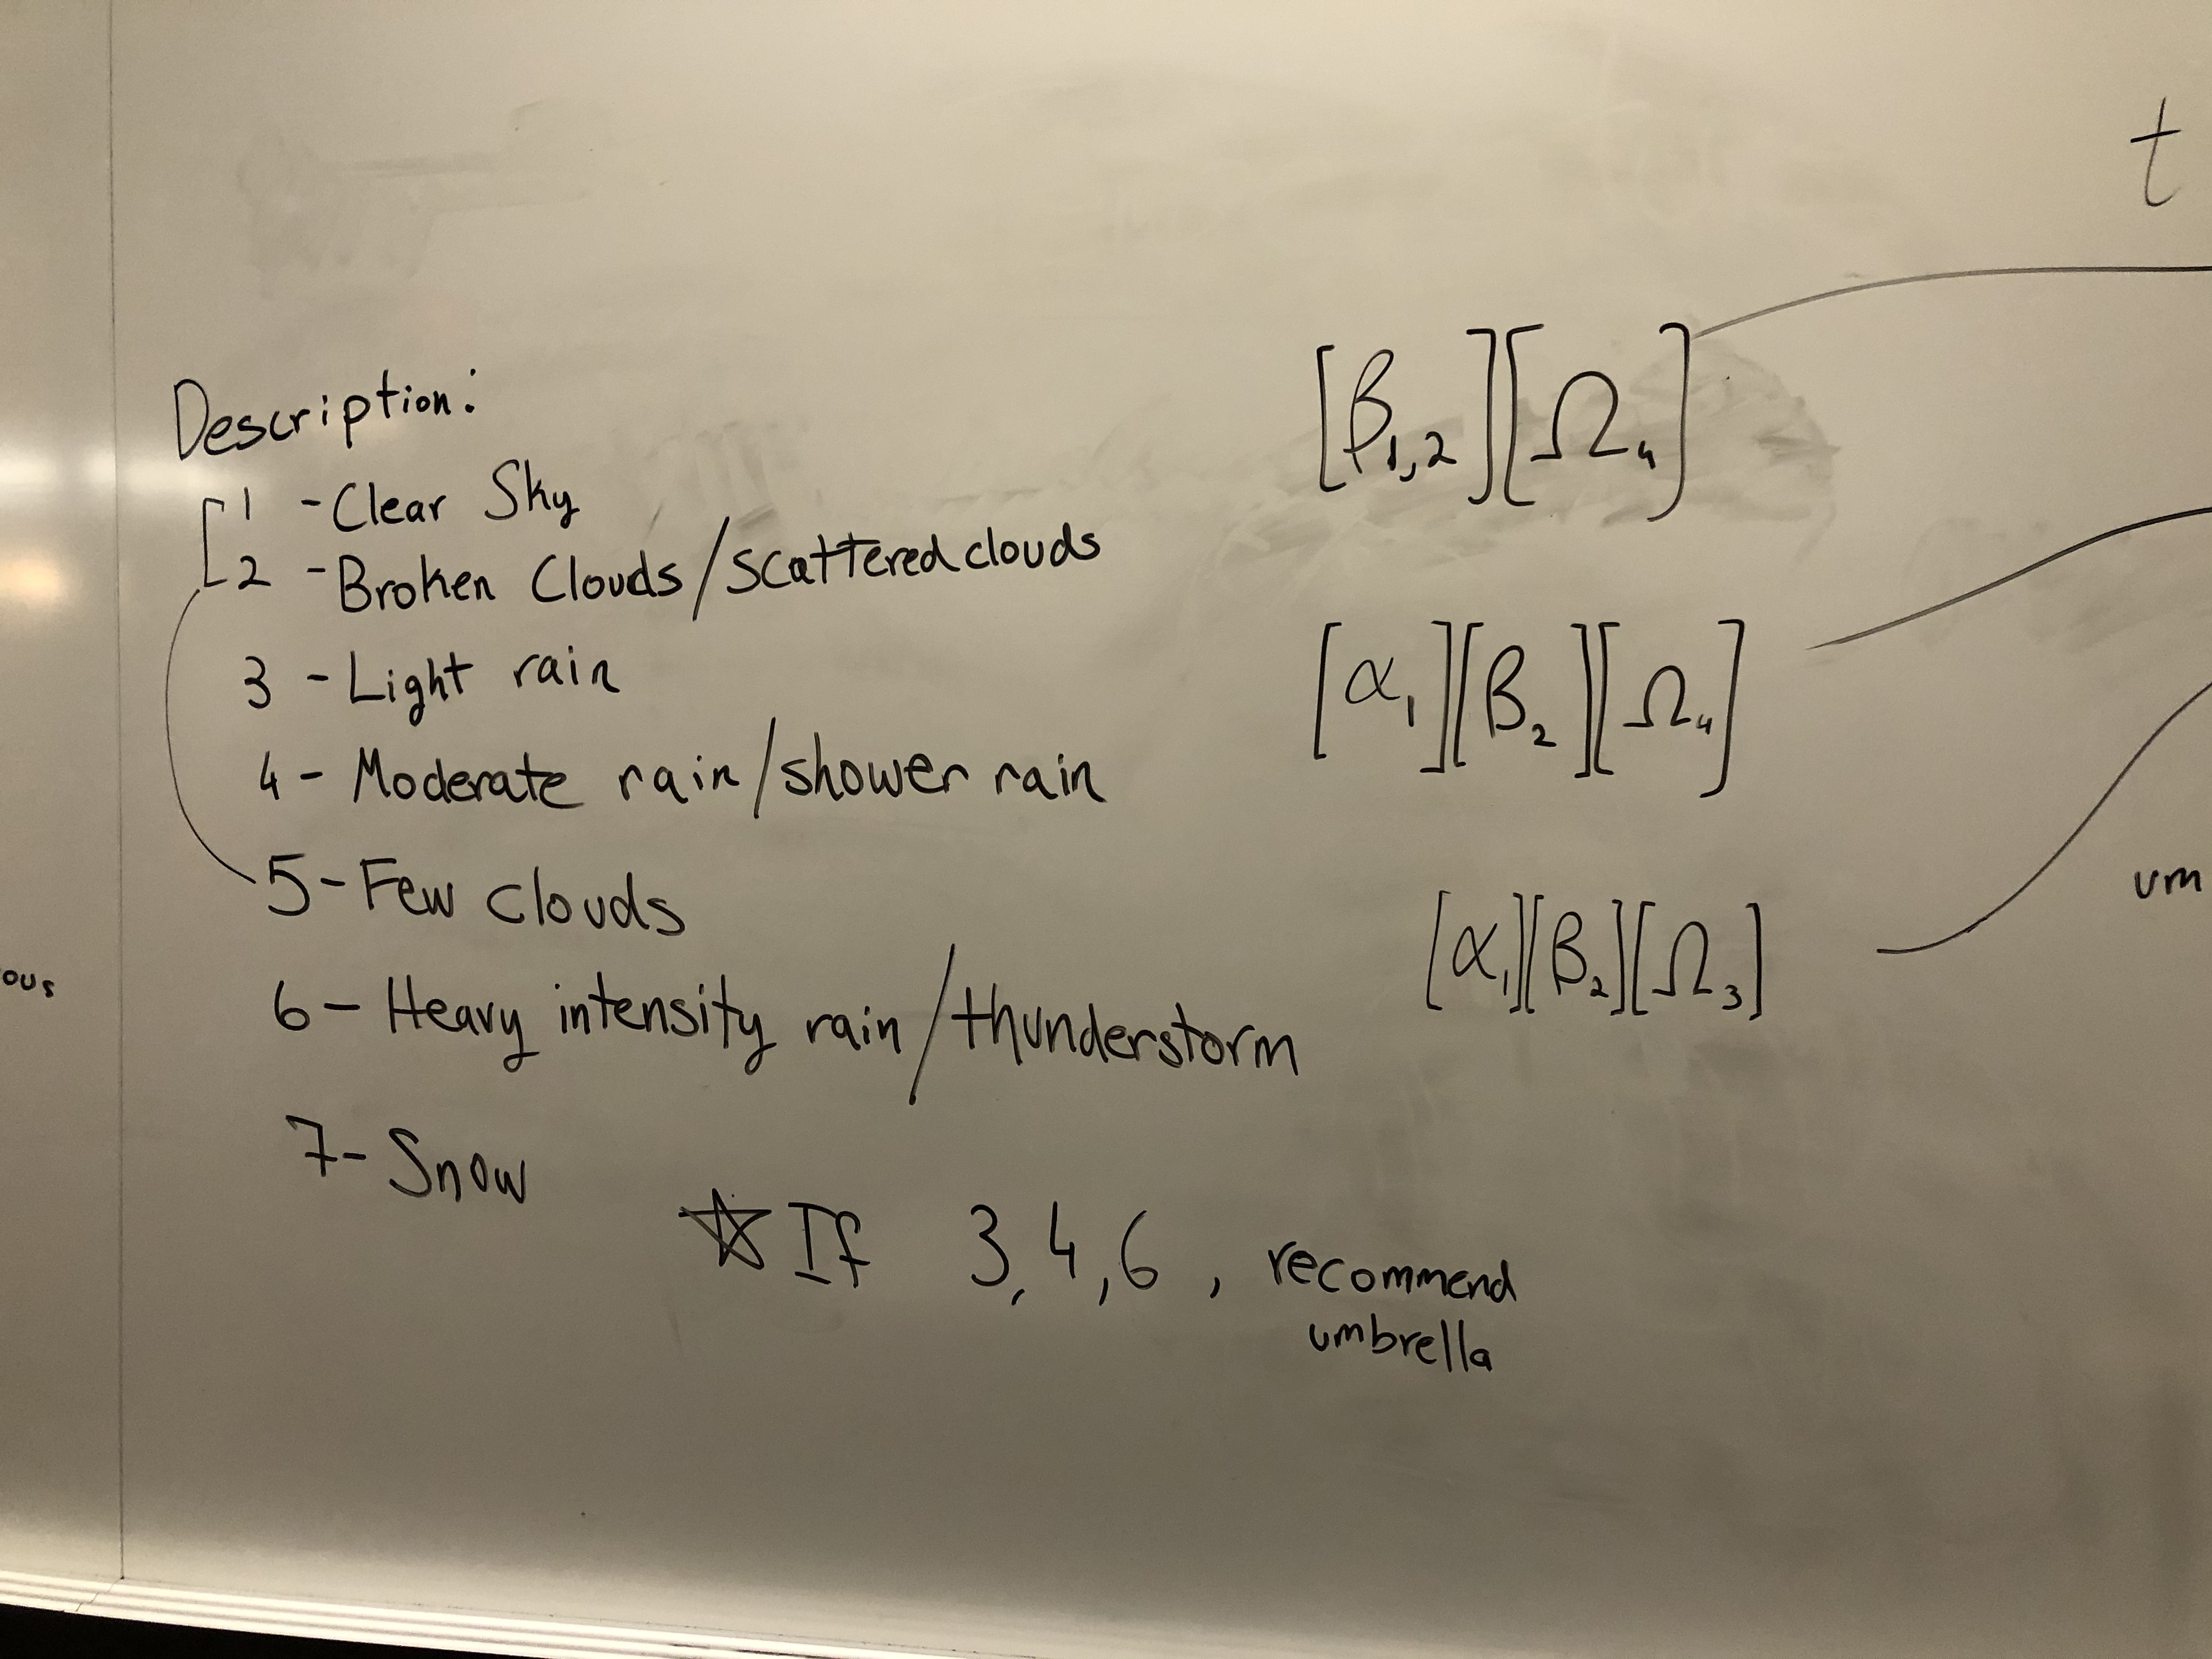 t
Description:
1 - Clear Sky
2 - Broken Clouds/scattered clouds
3 - Light rain
4 - Moderate rain/shower rain
5 - Few clouds
6 - Heavy intensity rain/thunderstorm
7 - Snow
☆ If 3, 4, 6, recommend
umbrella
[β1,2][Ω4]
[α1][β2][Ω4]
[α1][β2][Ω3]
um
ous